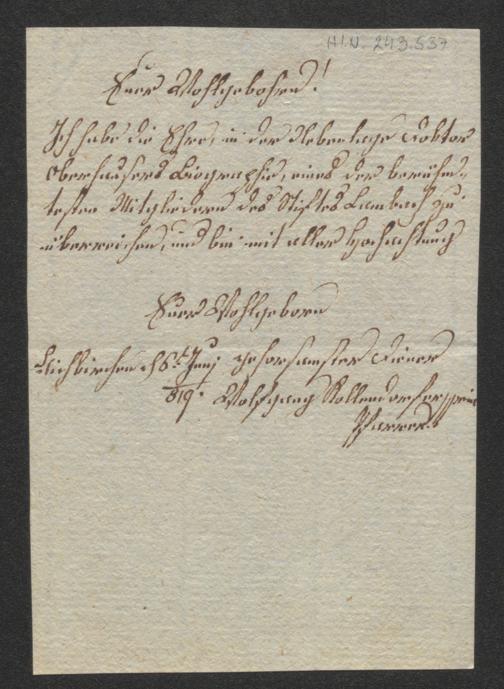 H.I.N. 243.537
Euer Wohlgebohrn!
Ich habe die Ehre, in der Nebenlage Doktor
Oberhausers Biographie, eines der berühm-
testen Mitgliedern des Stiftes Lambach zu
überreichen, und bin mit aller Hochachtung
Euer Wohlgeborn
Aichkirchen d 8t Juny gehorsamster Diener
819. Wolfgang Kollendorfer
Pfarrer